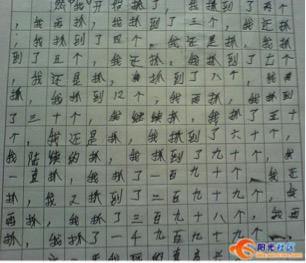 然后开始抓了，我抓到了两个
，我再抓，我抓到了三个，我还抓
，我抓到了五个，我还是抓，我抓
到了五个，我还抓，我抓到了六个
，我还是抓，我抓到了八个，我再
抓，我抓到12个，我再抓，我抓到
了三十个，我继续抓，我抓了五十
个，我还是抓，我抓到了六十个，
我陆续的抓，我抓到了九十个，我
一直抓，我抓了一百九十个，我还
抓，我又抓到了三百九十九个，我
再抓，我抓了三百九十八个，我
再抓，我抓了一千九百九十九个，
阳光社区